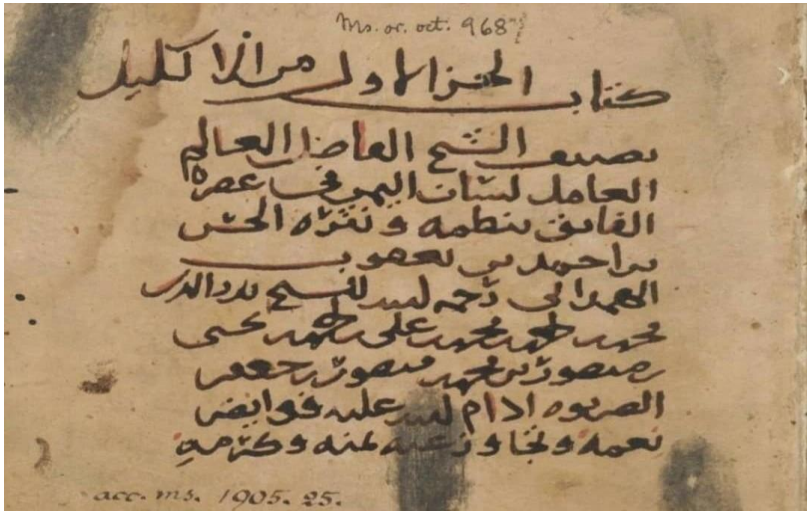 Ms. or. oct. 968
كتاب الجزء الاول من الاكليل
تصنيف الشيخ الفاضل العالم
العامل لسان اليمن في عصره
الفايق بنظمه ونثره الحسن
بن احمد بن يعقوب
الهمداني رحمه الله للشيخ بدر الدين
محمد احمد محمد علي احمد يحيى
منصور بن محمد منصور جعفر
ادام الله عليه فوايض
نعمه وتجاوز عنه بمنه وكرمه
acc. ms. 1905. 25.